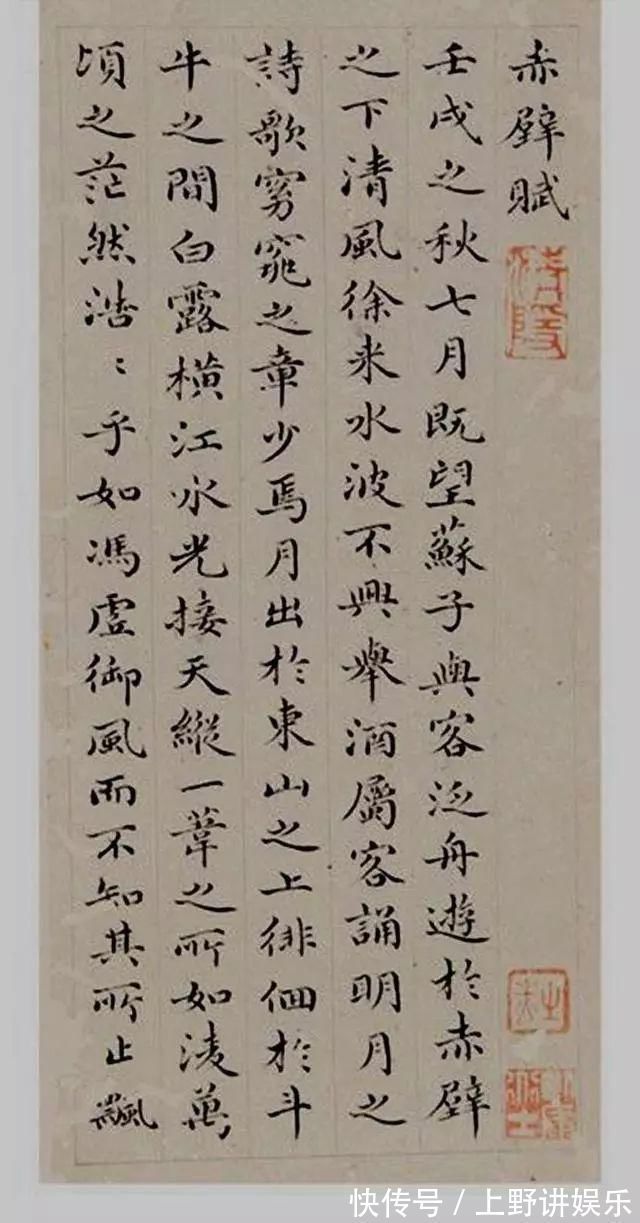 赤壁賦
壬戌之秋七月既望蘇子與客泛舟遊於赤壁
之下清風徐来水波不興舉酒屬客誦明月之
詩歌窈窕之章少焉月出於東山之上徘徊於斗
牛之間白露橫江水光接天縱一葦之所如淩萬
頃之茫然浩〻乎如馮虛御風而不知其所止飄
快传号/上野讲娱乐